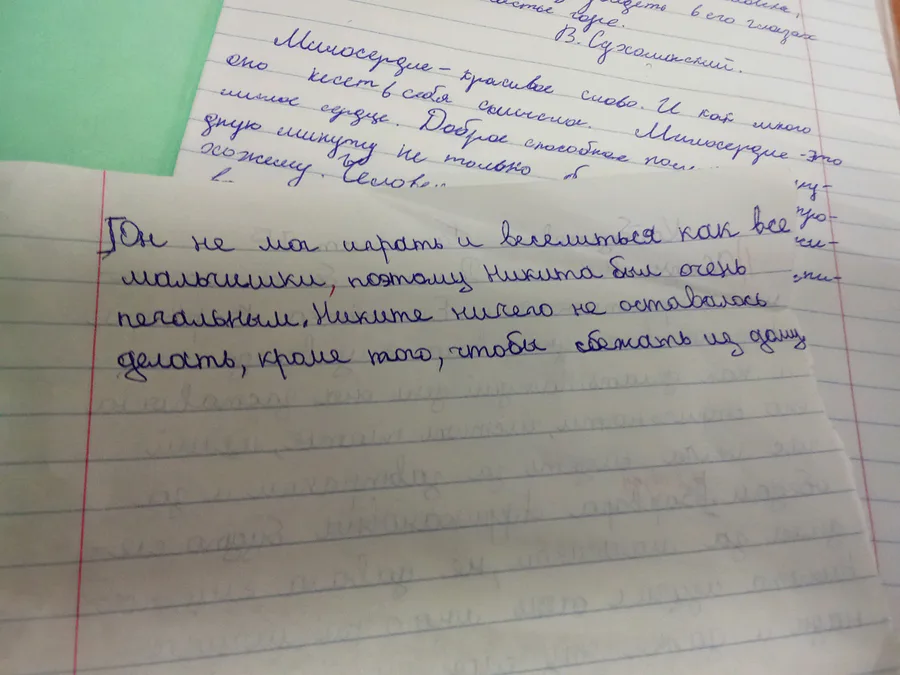 в его глазах
горе.
В. Сухомлинский.
Милосердие - красивое слово. И как много
оно несёт в себя смысла. Милосердие - это
милое сердце. Доброе способное
дную минуту не только
хожему. Челов
ну-
про-
чи-
Он не мог играть и веселиться как все
мальчишки, поэтому Никита был очень
печальным. Никите ничего не оставалось
делать, кроме того, чтобы сбежать из дому